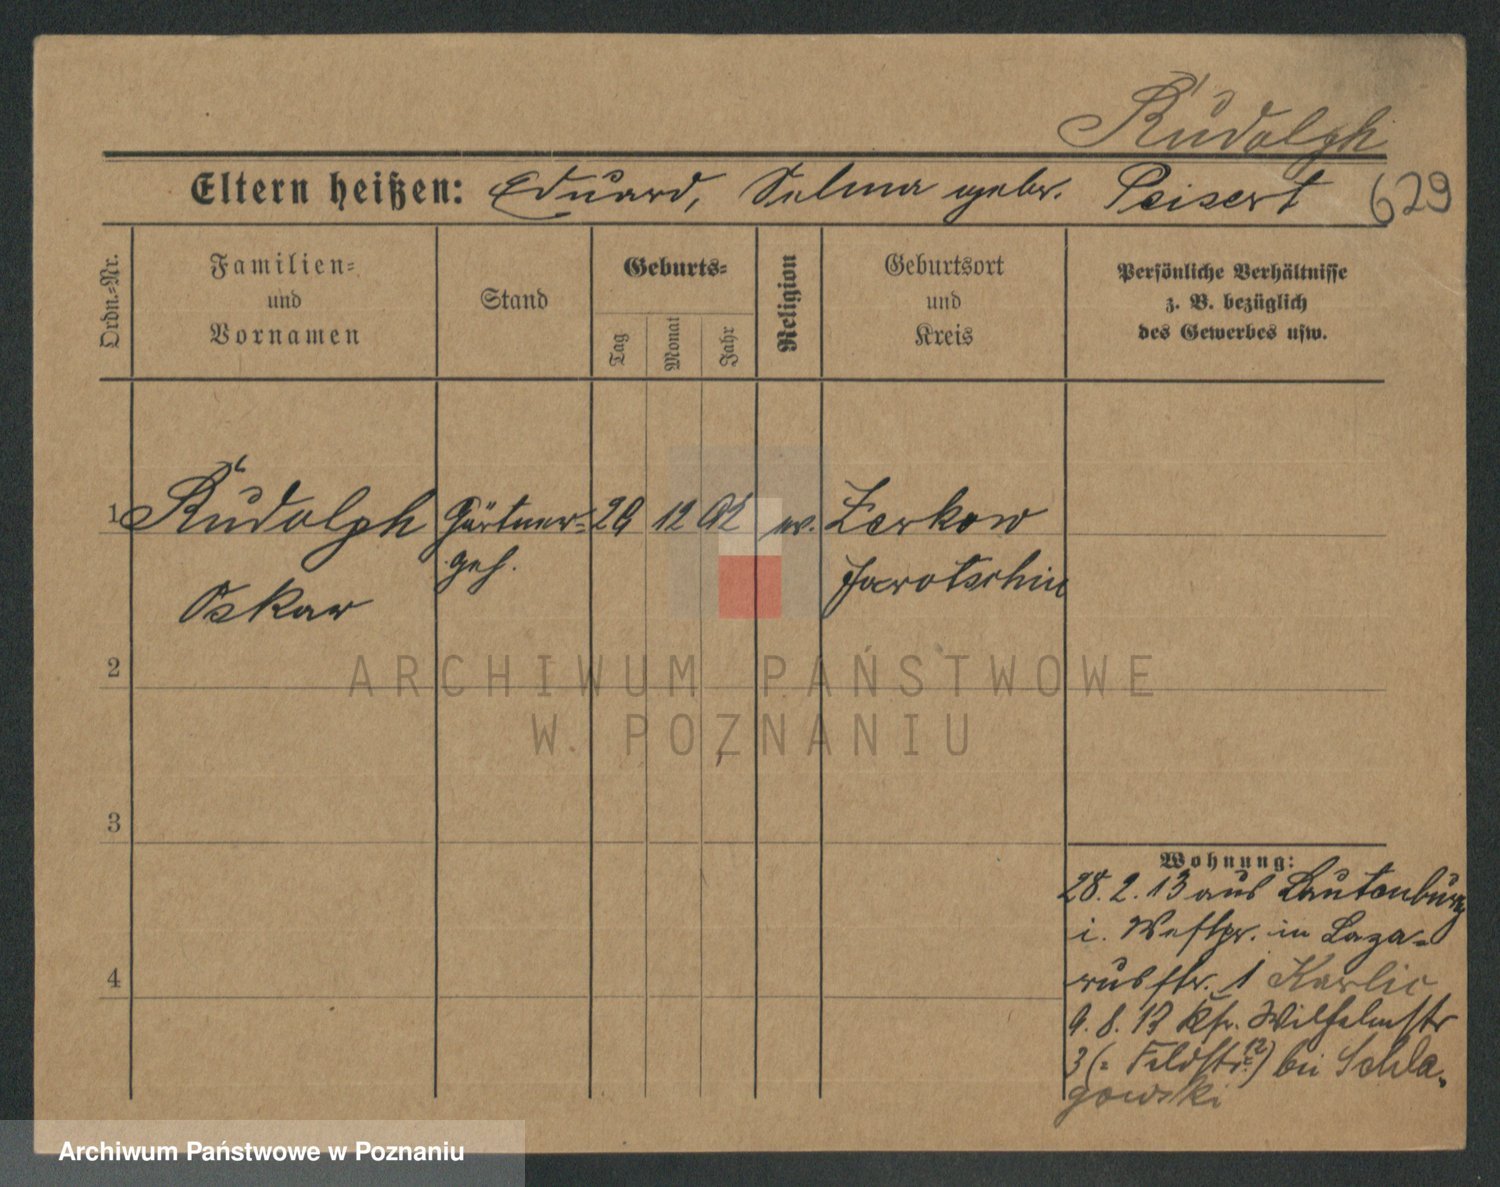 Rudolph
Eltern heißen: Eduard, Selma gebr. Peisert 629
Ordn.-Nr.
Familien-
und
Vornamen
Stand
Geburts-
Tag
Monat
Jahr
Religion
Geburtsort
und
Kreis
Persönliche Verhältnisse
z. B. bezüglich
des Gewerbes usw.
1 Rudolph Gärtner- 12 ev. Zerkow
geh. Jarotschin
Oskar
2
ARCHIWUM PAŃSTWOWE
W POZNANIU
3
Wohnung:
28. 2. 13 aus Lautenburg
i. Westpr. in Laza-
russtr. 1 Karlic
9. 8. Wilhelmstr
3 (= Feldstr. 12) bei Schla-
gowski
4
Archiwum Państwowe w Poznaniu